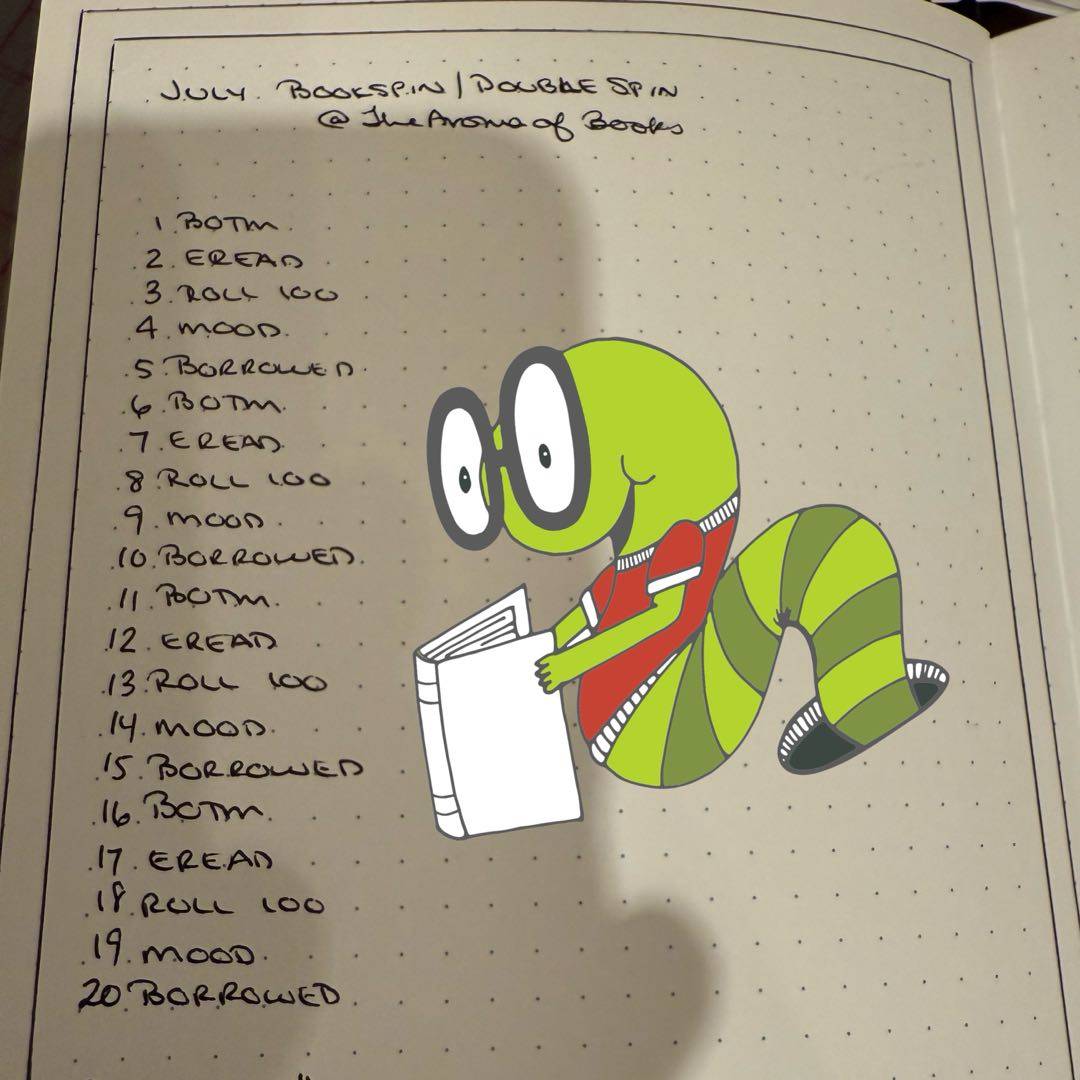 JULY BOOKSPIN / DOUBLE SPIN
@ TheAromaofBooks
1 BOTM
2. EREAD
3. ROLL 100
4. MOOD
5. BORROWED
6. BOTM
7. EREAD
8 ROLL 100
9. MOOD
10. BORROWED
11. BOTM
12. EREAD
13. ROLL 100
14. MOOD
15. BORROWED
16. BOTM
17. EREAD
18. ROLL 100
19. MOOD
20 BORROWED